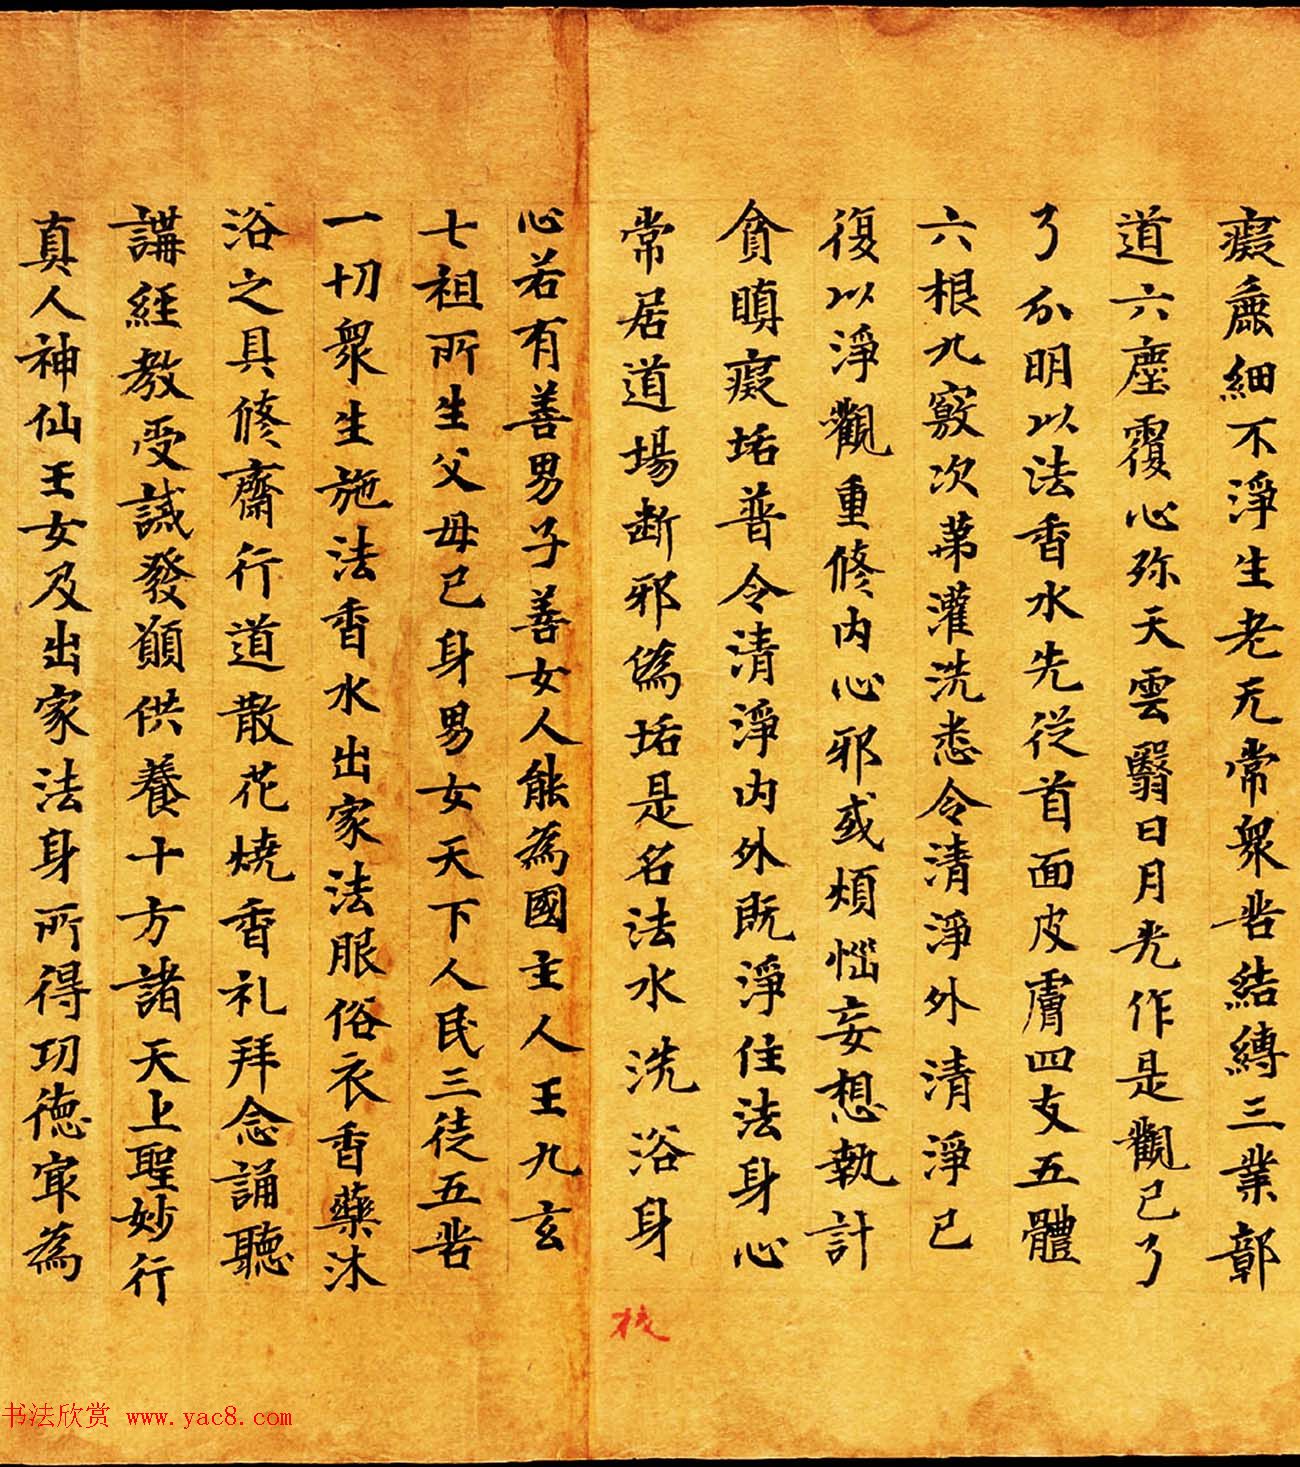 癡麁細不淨生老无常衆苦結縛三業鄣
道六塵覆心弥天雲翳日月光作是觀已了
了分明以法香水先從首面皮膚四支五體
六根九竅次苐灌洗悉令清淨外清淨已
復以淨觀重修内心邪或煩惱妄想執計
貪瞋癡垢普令清淨内外既淨住法身心
常居道場断邪偽垢是名法水洗浴身
心若有善男子善女人能為國主人王九玄
七祖所生父母己身男女天下人民三徒五苦
一切衆生施法香水出家法服俗衣香藥沐
浴之具修齋行道散花燒香礼拜念誦聽
講經教受誡發願供養十方諸天上聖妙行
真人神仙玉女及出家法身所得功德寂為
校
书法欣赏 www.yac8.com